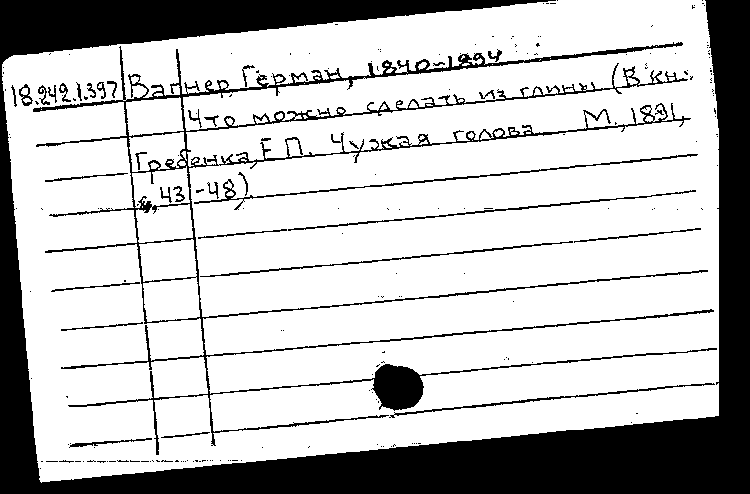 18.242.1.397 Вагнер, Герман, 1840-1894
Что можно сделать из глины (В кн.:
Гребенка, Е.П. Чужая голова. М., 1891,
43-48).